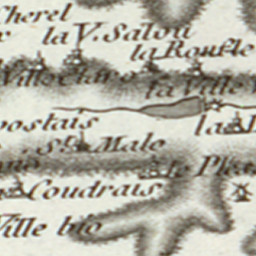 Cherel
la V. Salou
la Roufle
la Ville
postais
la
St. Malo
le Ples
Coudrais
Ville bio